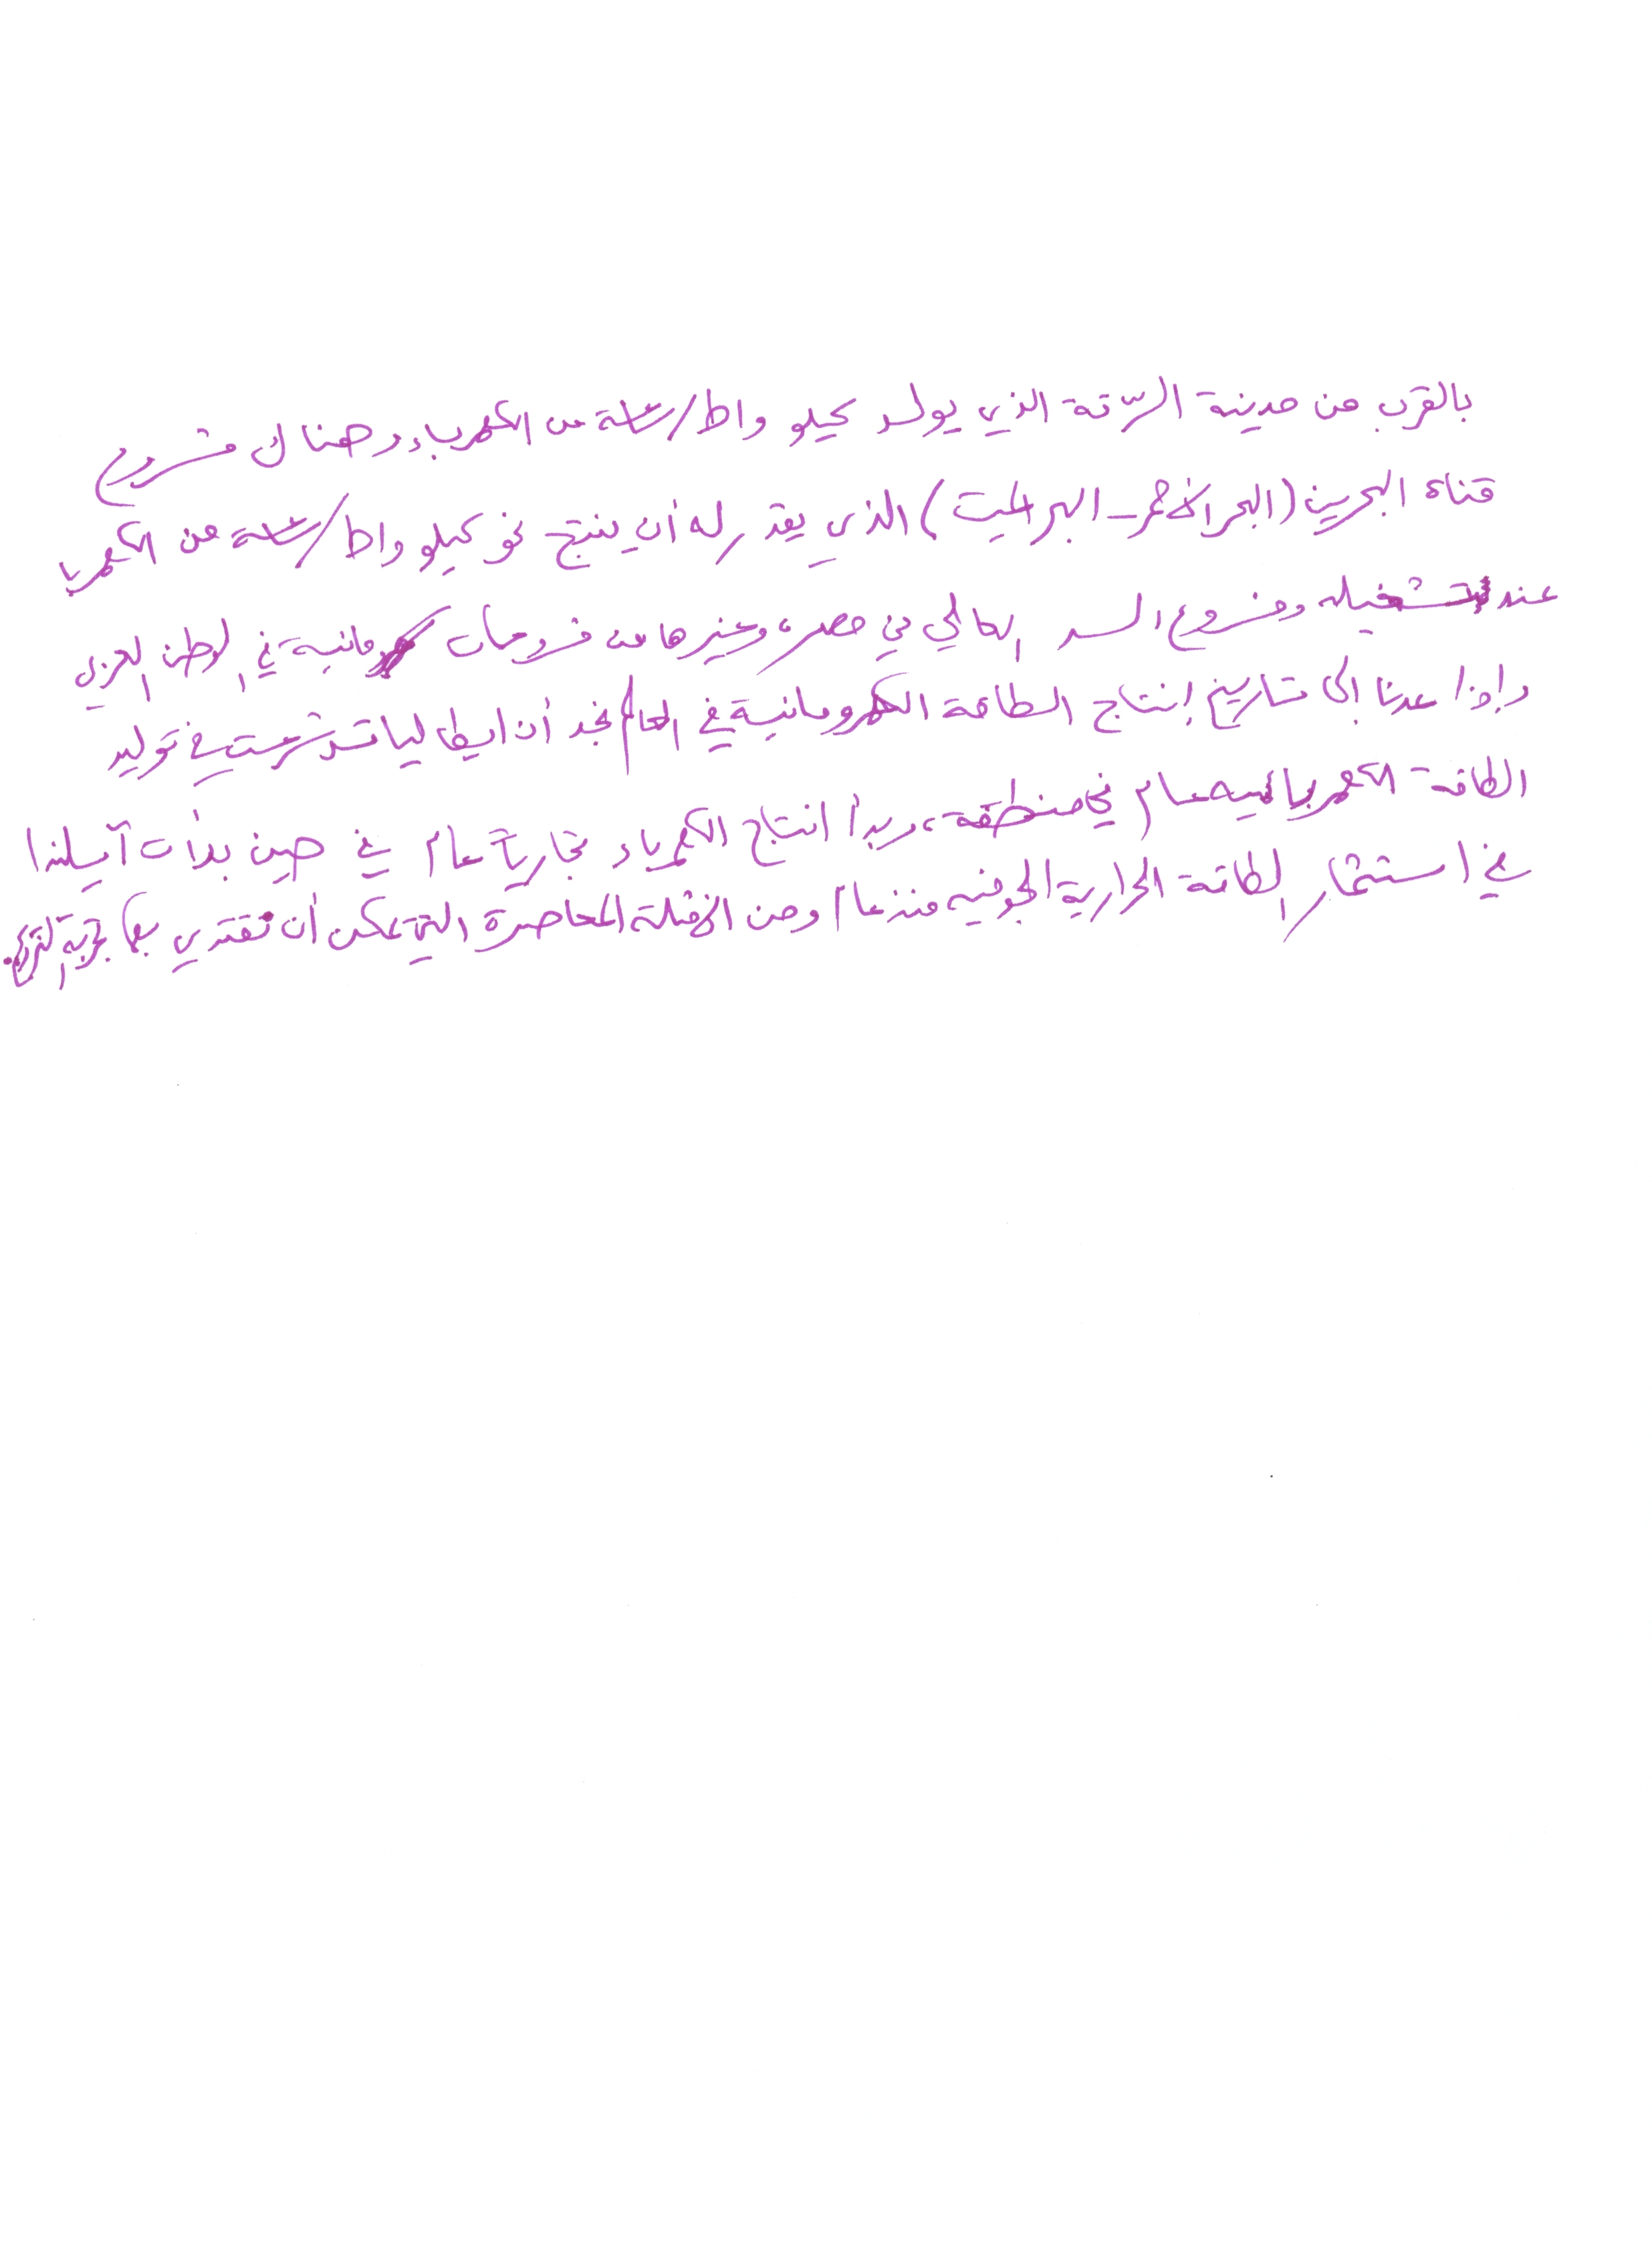 بالقرب من مدينة الرّقة الذي يولد كيلو واط/ساعة من الكهرباء وهناك مشروع
قناة البحرين (البحر الأحمر_البحر الميت) الذي يقدر له أن ينتج نحو كيلو واط/ساعة من الكهرباء
عند تشغيله ومشروع السد العالي في مصر، وغيرها من مشروعات كهرومائية في الوطن العربي
وإذا عدنا إلى تاريخ إنتاج الطاقة الكهرومائية في العالم نجد أن ايطاليا قد شرعت في توليد
الطاقة الكهربائية عام في منطقة، وبدأ انتاج الكهرباء تجارياً عام في حين بدأت آيسلندا
في استثمار الطاقة الحرارية الجوفيه منذ عام ومن الأمثلة المعاصرة التي يمكن أن نقتدي بها تجربة